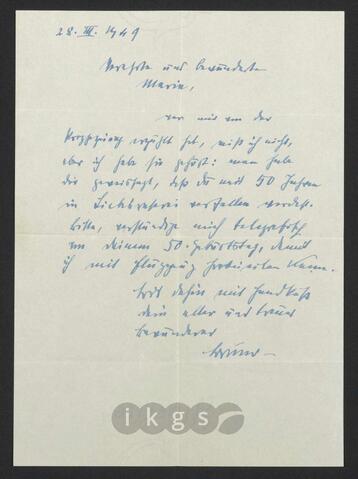 28. III. 1949
Verehrte und bewunderte
Maria,
wer mir von der
Prophezeiung erzählt hat, weiß ich nicht,
aber ich habe sie gehört: man habe
dir geweissagt, daß du mit 50 Jahren
in Liebesraserei verfallen werdest.
Bitte, verständige mich telegrafisch
von deinem 50. Geburtstag, damit
ich mit Flugzeug herbeieilen kann.
Bis dahin mit Handkuß
dein alter und treuer
Bewunderer
Bruno
ikgs